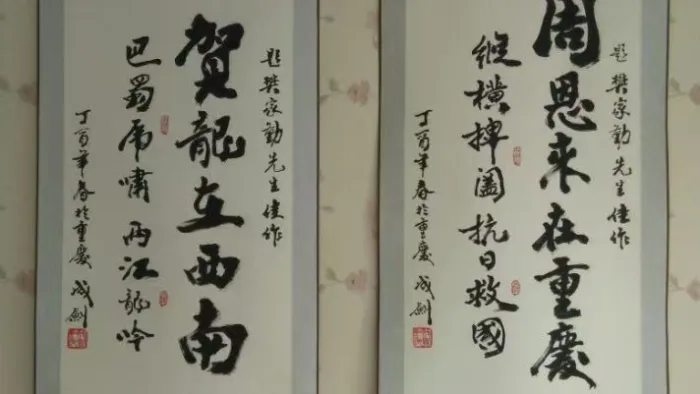 题樊家勤先生佳作
周恩來在重慶
縱橫捭闔抗日救國
丁酉年春於重慶 成劍
题樊家勤先生佳作
賀龍在西南
巴蜀虎嘯兩江龍吟
丁酉年春於重慶 成劍